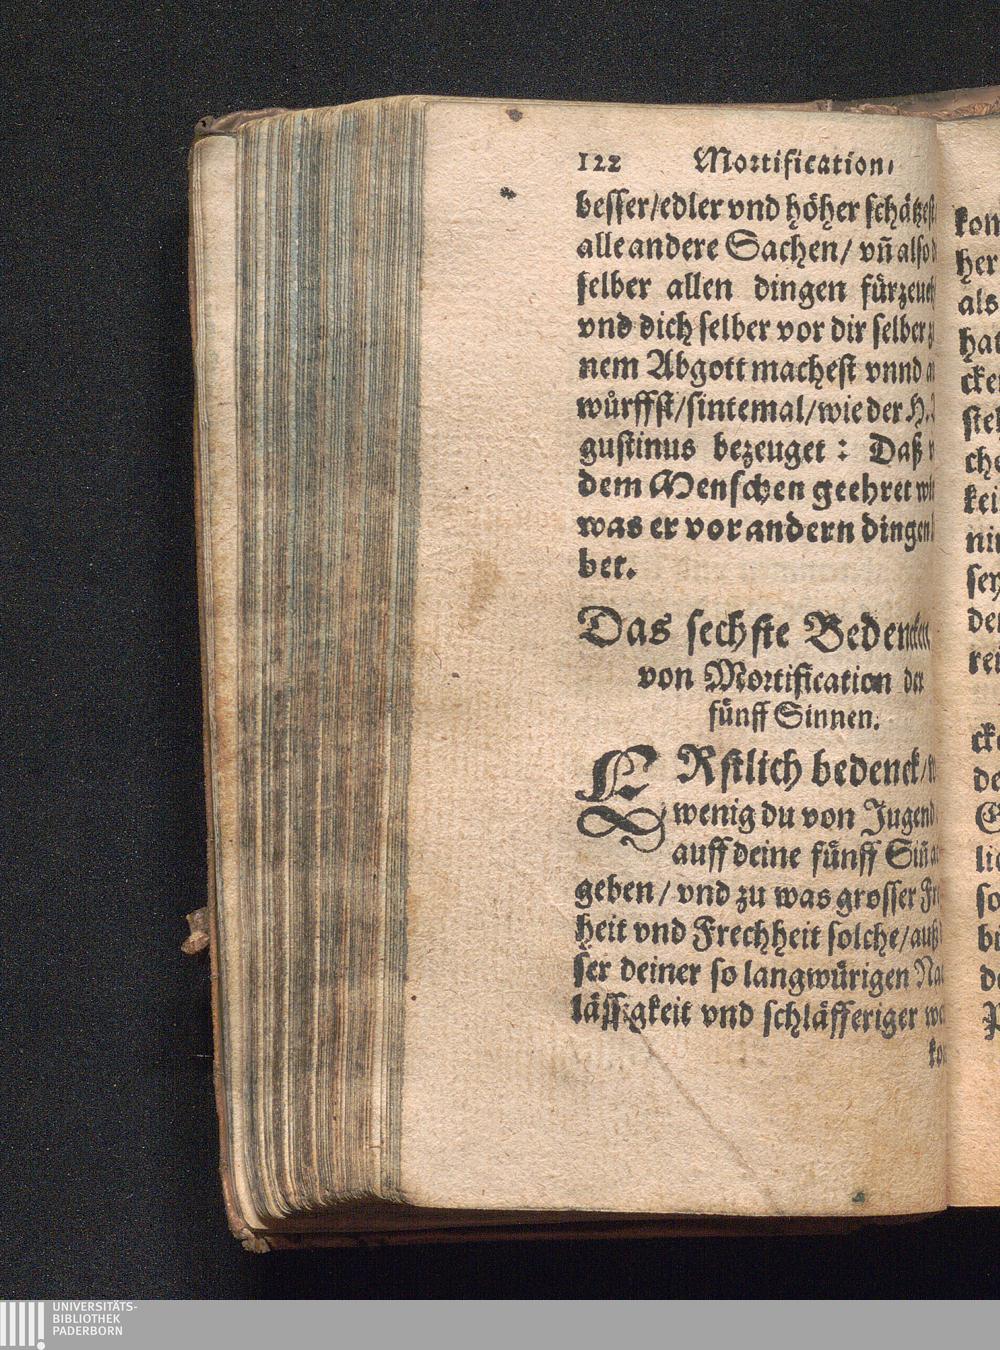 122 Mortification,
besser/edler vnd höher schätzest
alle andere Sachen/ vñ also
selber allen dingen fürzeuch
vnd dich selber vor dir selber
nem Abgott machest vnnd
würffst/sintemal/wie der H.
gustinus bezeuget: Daß
dem Menschen geehret
was er vor andern dingen
bet.
Das sechste Bedencken
von Mortification der
fünff Sinnen.
ERstlich bedenck/
wenig du von Jugend
auff deine fünff Siñ
geben/ vnd zu was grosser
heit vnd Frechheit solche/auß
ser deiner so langwürigen
lässigkeit vnd schläfferiger
kon
her
als
hat
cke
ste
che
kei
nin
sey
der
rei
cke
de
lic
so
UNIVERSITÄTS-
BIBLIOTHEK
PADERBORN